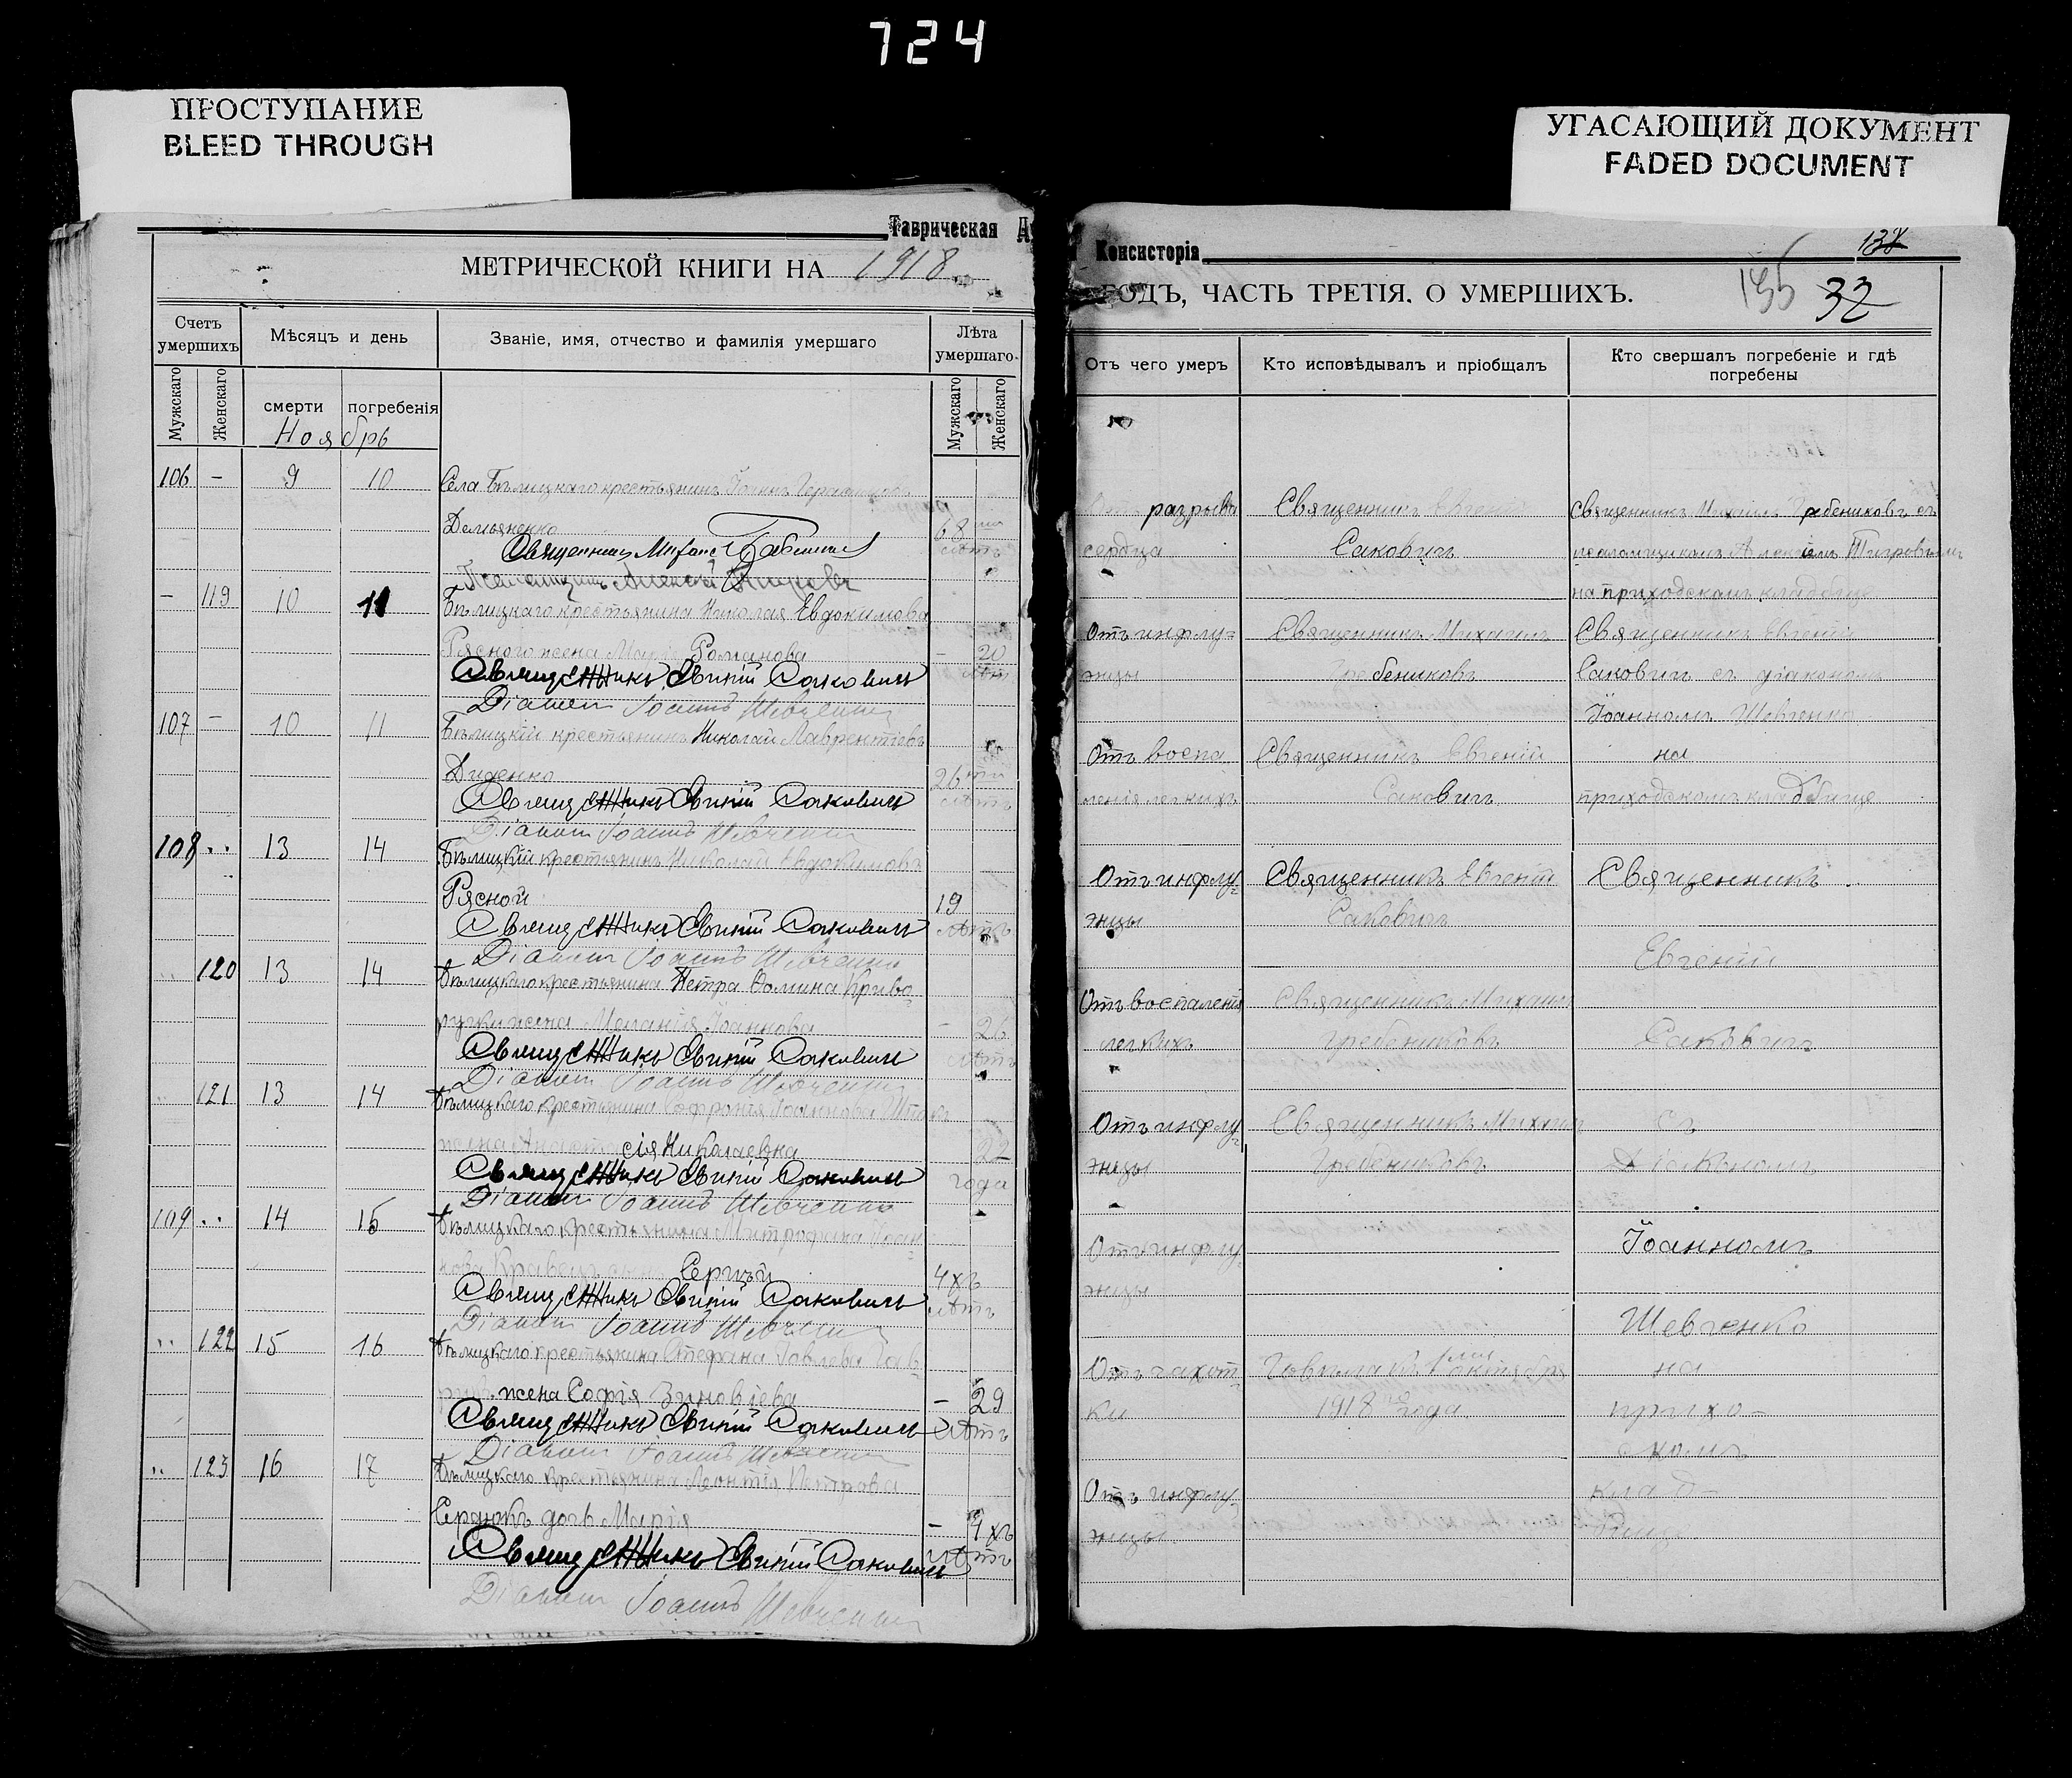 724
ПРОСТУПАНИЕ
BLEED THROUGH
УГАСАЮЩИЙ ДОКУМЕНТ
FADED DOCUMENT
Таврическая Ду
МЕТРИЧЕСКОЙ КНИГИ НА 1918
Счетъ умершихъ
Мѣсяцъ и день
Званіе, имя, отчество и фамилія умершаго
Лѣта умершаго
Мужскаго
Женскаго
смерти
погребенія
Мужскаго
Женскаго
Ноябрь
106 – 9 10 Села Бѣлицкаго крестьянинъ Іоаннъ
Демьяненко 68 лѣтъ
Священникъ Михаилъ
Псаломщикъ Алексій Тигровъ
– 119 10 11 Бѣлицкаго крестьянина Николая Евдокимова
Рясного жена Марія Романова – 20 лѣтъ
Священникъ Евгеній Саковичъ
Діаконъ Іоаннъ Шевченко
107 – 10 11 Бѣлицкій крестьянинъ Николай Лаврентіевъ
Диденко 26ти лѣтъ
Священникъ Евгеній Саковичъ
Діаконъ Іоаннъ Шевченко
108 .. 13 14 Бѣлицкій крестьянинъ Николай Евдокимовъ
Рясной 19 лѣтъ
Священникъ Евгеній Саковичъ
Діаконъ Іоаннъ Шевченко
.. 120 13 14 Бѣлицкаго крестьянина Петра Фомина Криво
ручки жена Меланія Іоаннова – 26 лѣтъ
Священникъ Евгеній Саковичъ
Діаконъ Іоаннъ Шевченко
.. 121 13 14 Бѣлицкаго крестьянина Софронія Іоаннова
жена Анастасія Николаевна 22 года
Священникъ Евгеній Саковичъ
Діаконъ Іоаннъ Шевченко
109 .. 14 15 Бѣлицкаго крестьянина Митрофана Іоан
нова Кравецъ сынъ Сергѣй 4хъ лѣтъ
Священникъ Евгеній Саковичъ
Діаконъ Іоаннъ Шевченко
.. 122 15 16 Бѣлицкаго крестьянина Стефана
жена Софія Зиновіева – 29 лѣтъ
Священникъ Евгеній Саковичъ
Діаконъ Іоаннъ Шевченко
.. 123 16 17 Бѣлицкаго крестьянина Леонтія Петрова
Сердюкъ дочь Марія – 4хъ лѣтъ
Священникъ Евгеній Саковичъ
Діаконъ Іоаннъ Шевченко
Консисторія
ГОДЪ, ЧАСТЬ ТРЕТІЯ, О УМЕРШИХЪ.
32
Отъ чего умеръ
Кто исповѣдывалъ и пріобщалъ
Кто свершалъ погребеніе и гдѣ погребены
Отъ разрыва Священникъ Евгеній Священникъ Михаилъ Гребениковъ съ
сердца Саковичъ псаломщикомъ Алексіемъ Тигровымъ
на приходскомъ кладбище
Отъ инфлу= Священникъ Михаилъ Священникъ Евгеній
энцы Гребениковъ Саковичъ съ діакономъ
Іоанномъ Шевченко
Отъ воспа Священникъ Евгеній на
ленія легкихъ Саковичъ приходскомъ кладбище
Отъ инфлу= Священникъ Евгеній Священникъ
энцы Саковичъ
Евгеній
Отъ воспаленія Священникъ Михаилъ
легкихъ Гребениковъ Саковичъ
Отъ инфлу= Священникъ Михаилъ съ
энцы Гребениковъ Діакономъ
Отъ инфлу= Іоанномъ
энцы
Шевченко
Отъ чахот= октября на
ки 1918 года прихо–
скомъ
Отъ инфлу= клад–
энцы